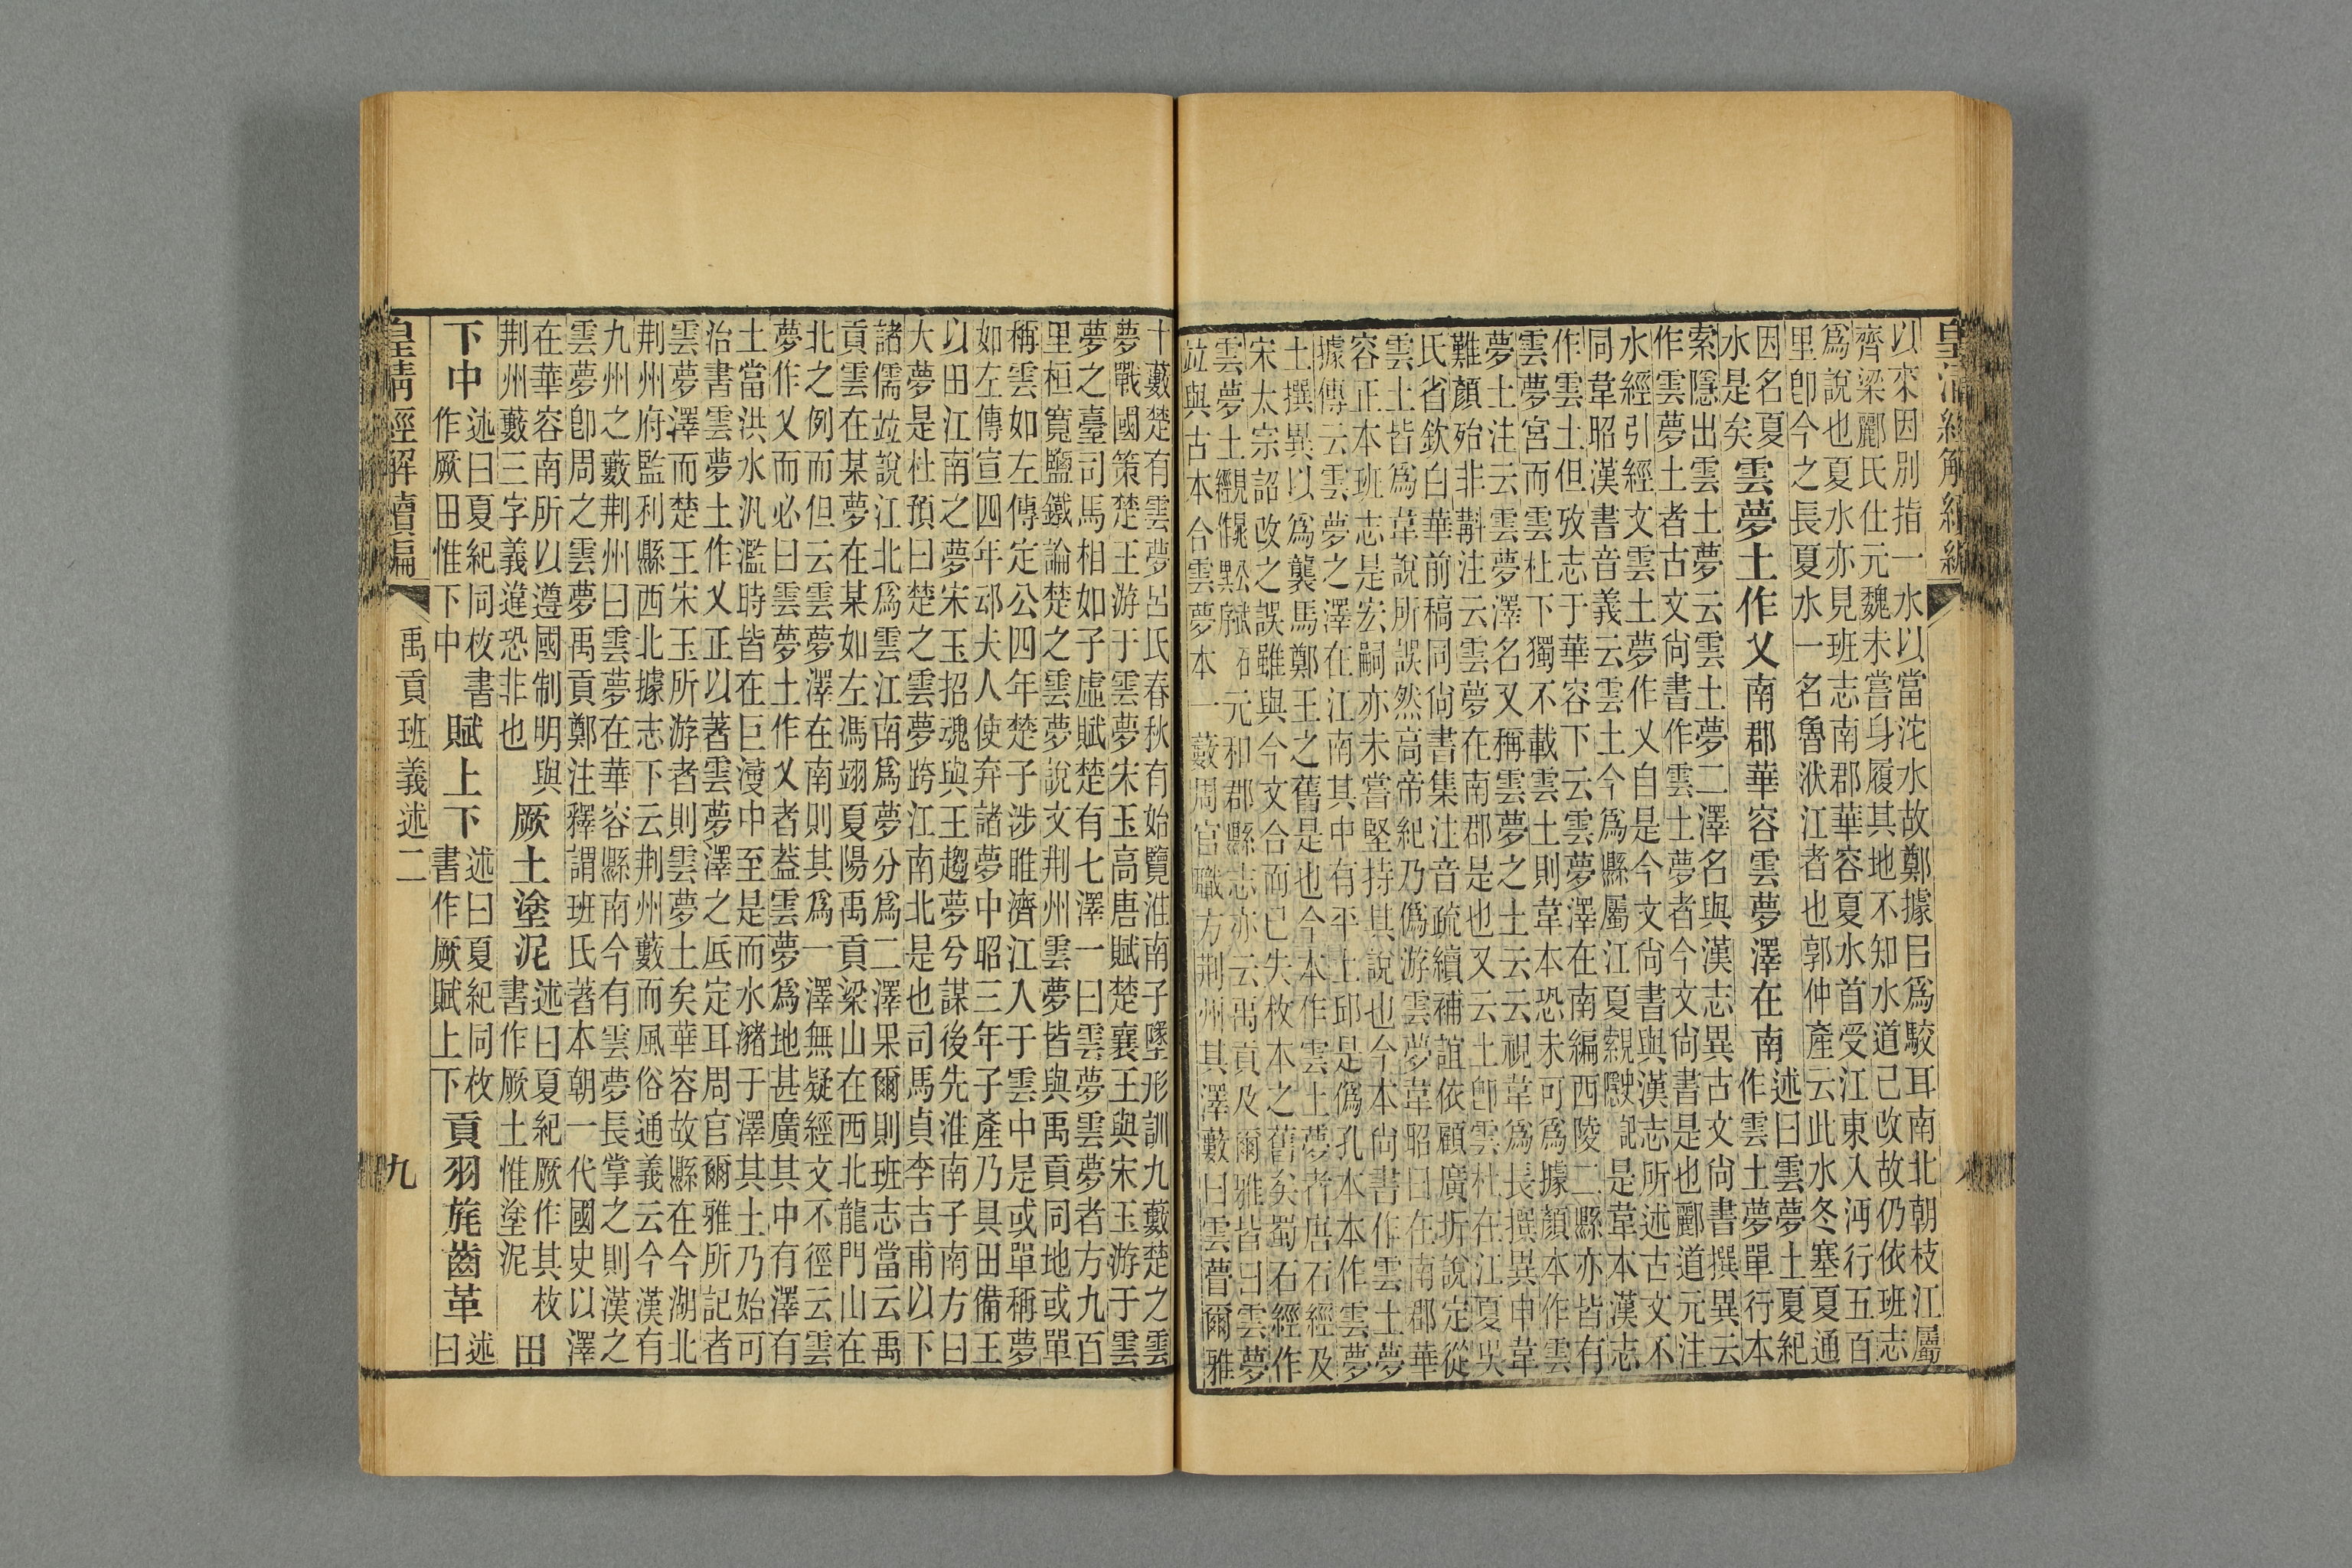 以來因別指一水以當沱水故鄭據㠯爲駮耳南北朝枝江屬
齊梁酈氏仕元魏未嘗身履其地不知水道已改故仍依班志
爲說也夏水亦見班志南郡華容夏水首受江東入沔行五百
里卽今之長夏水一名魯洑江者也郭仲產云此水冬塞夏通
因名夏
水是矣
雲夢土作乂南郡華容雲夢澤在南
述曰雲夢土夏紀
作雲土夢單行本
索隱出雲土夢云雲土夢二澤名與漢志異古文尙書撰異云
作雲夢土者古文尙書作雲土夢者今文尙書是也酈道元注
水經引經文雲土夢作乂自是今文尙書與漢志所述古文不
同韋昭漢書音義云雲土今爲縣屬江夏是韋本漢志
作雲土但攷志于華容下云雲夢澤在南編西陵二縣亦皆有
雲夢宮而雲杜下獨不載雲土則韋本恐未可爲據顏本作雲
夢土注云雲夢澤名又稱雲夢之土云云視韋爲長撰異申韋
難顏殆非斠注云雲夢在南郡是也又云土卽雲杜在江夏吳
氏省欽白華前稿同尙書集注音疏續補誼依顧廣圻說定從
雲土皆爲韋說所誤然高帝紀乃僞游雲夢韋昭曰在南郡華
容正本班志是宏嗣亦未嘗堅持其說也今本尙書作雲土夢
據傳云雲夢之澤在江南其中有平土邱是僞孔本本作雲夢
土撰異以爲襲馬鄭王之舊是也今本作雲土夢者唐石經及
宋太宗詔改之誤雖與今文合而已失枚本之舊矣蜀石經作
雲夢土元和郡縣志亦云禹貢及爾雅皆曰雲夢
竝與古本合雲夢本一藪周官職方荆州其澤藪曰雲瞢爾雅
十藪楚有雲夢呂氏春秋有始覽淮南子墜形訓九藪楚之雲
夢戰國策楚王游于雲夢宋玉高唐賦楚襄王與宋玉游于雲
夢之臺司馬相如子虛賦楚有七澤一曰雲夢雲夢者方九百
里桓寬鹽鐵論楚之雲夢說文荆州雲夢皆與禹貢同地或單
稱雲如左傳定公四年楚子涉睢濟江入于雲中是或單稱夢
如左傳宣四年䢵夫人使弃諸夢中昭三年子產乃具田備王
以田江南之夢宋玉招魂與王趨夢兮謀後先淮南子南方曰
大夢是杜預曰楚之雲夢跨江南北是也司馬貞李吉甫以下
諸儒竝說江北爲雲江南爲夢分爲二澤果爾則班志當云禹
貢雲在某夢在某如左馮翊夏陽禹貢梁山在西北龍門山在
北之例而但云雲夢澤在南則其爲一澤無疑經文不徑云雲
夢作乂而必曰雲夢土作乂者葢雲夢爲地甚廣其中有澤有
土當洪水汎濫時皆在巨浸中至是而水瀦于澤其土乃始可
治書雲夢土作乂正以著雲夢澤之底定耳周官爾雅所記者
雲夢澤而楚王宋玉所游者則雲夢土矣華容故縣在今湖北
荆州府監利縣西北據志下云荆州藪而風俗通義云今漢有
九州之藪荆州曰雲夢在華容縣南今有雲夢長掌之則漢之
雲夢卽周之雲夢禹貢鄭注釋謂班氏著本朝一代國史以澤
在華容南所以遵國制明與
荆州藪三字義違恐非也
厥土塗泥
述曰夏紀厥作其枚
書作厥土惟塗泥
田
下中
述曰夏紀同枚書
作厥田惟下中
賦上下
述曰夏紀同枚
書作厥賦上下
貢羽旄齒革
述
曰
皇清經解續編
禹貢班義述二
九